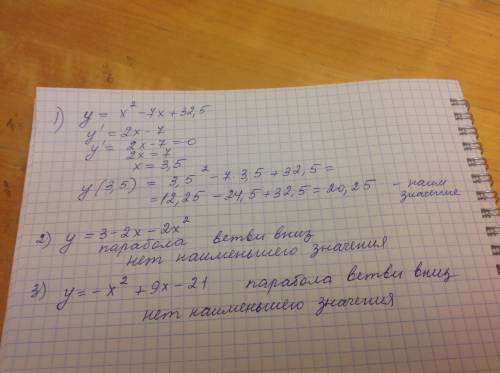 1) y = x² - 7x + 32,5
y' = 2x - 7
y' = 2x - 7 = 0
2x = 7
x = 3,5
y(3,5) = 3,5² - 7·3,5 + 32,5 =
= 12,25 - 24,5 + 32,5 = 20,25 - наим
значение
2) y = 3 - 2x - 2x²
парабола ветви вниз
нет наименьшего значения
3) y = -x² + 9x - 21 парабола ветви вниз
нет наименьшего значения